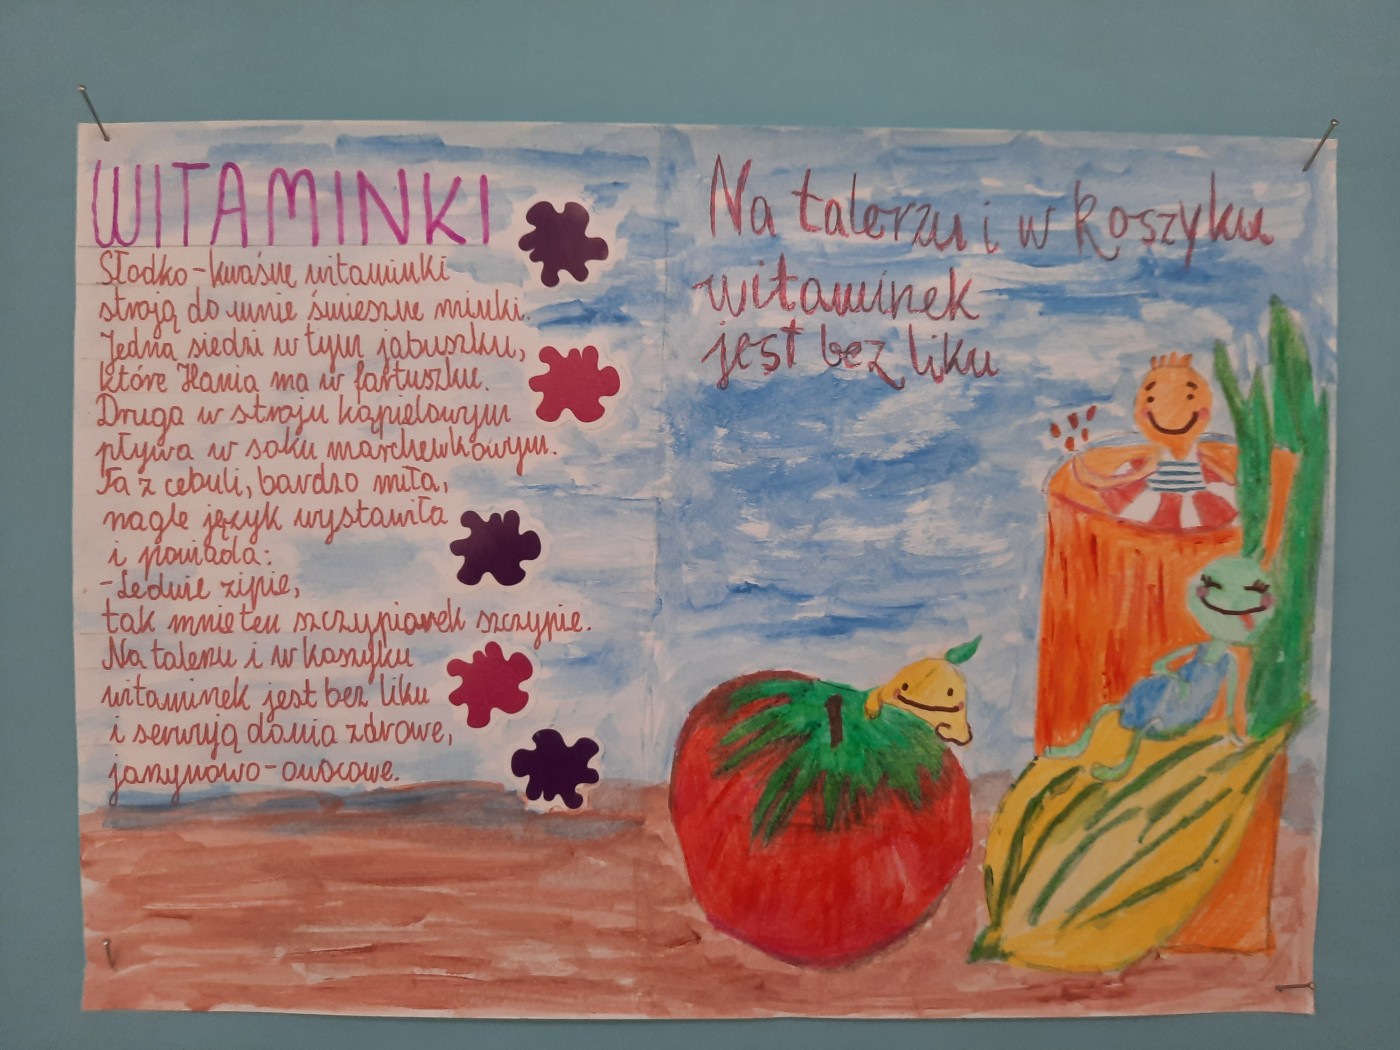 WITAMINKI
Słodko-kwaśne witaminki
stroją do mnie śmieszne minki.
Jedna siedzi w tym jabuszku,
które Hania ma w fartuszku.
Druga w stroju kąpielowym
pływa w soku marchewkowym.
Ta z cebuli, bardzo miła,
nagle język wystawiła
i powiada:
-Ledwie zipie,
tak mnie ten szczypiorek szczypie.
Na talerzu i w koszyku
witaminek jest bez liku
i serwują dania zdrowe,
jarzynowo-owocowe.
Na talerzu i w koszyku
witaminek
jest bez liku